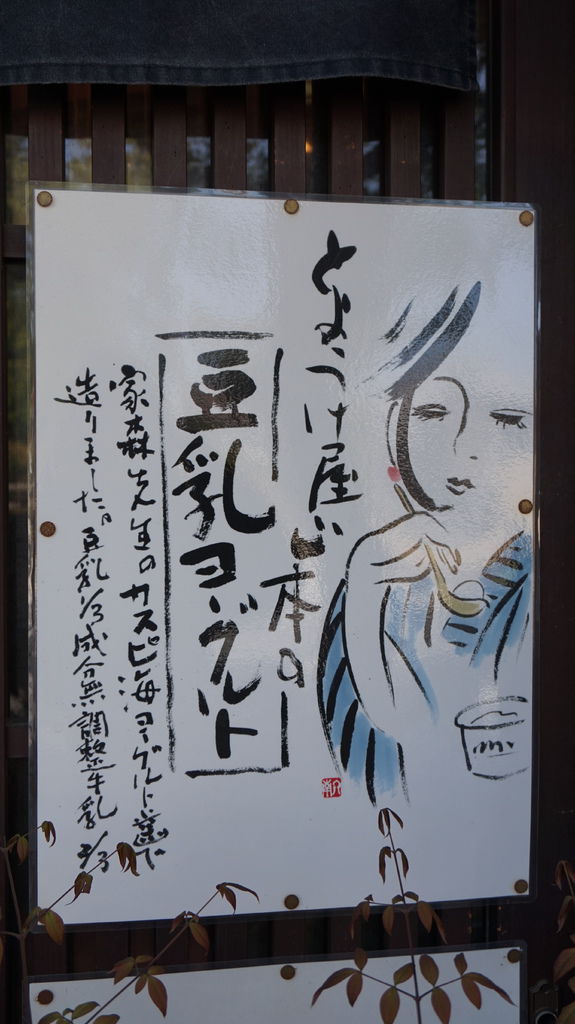 とようけ屋山本の
豆乳ヨーグルト
家森先生のカスピ海ヨーグルト菌で
造りました。豆乳1/3成分無調整牛乳2/3